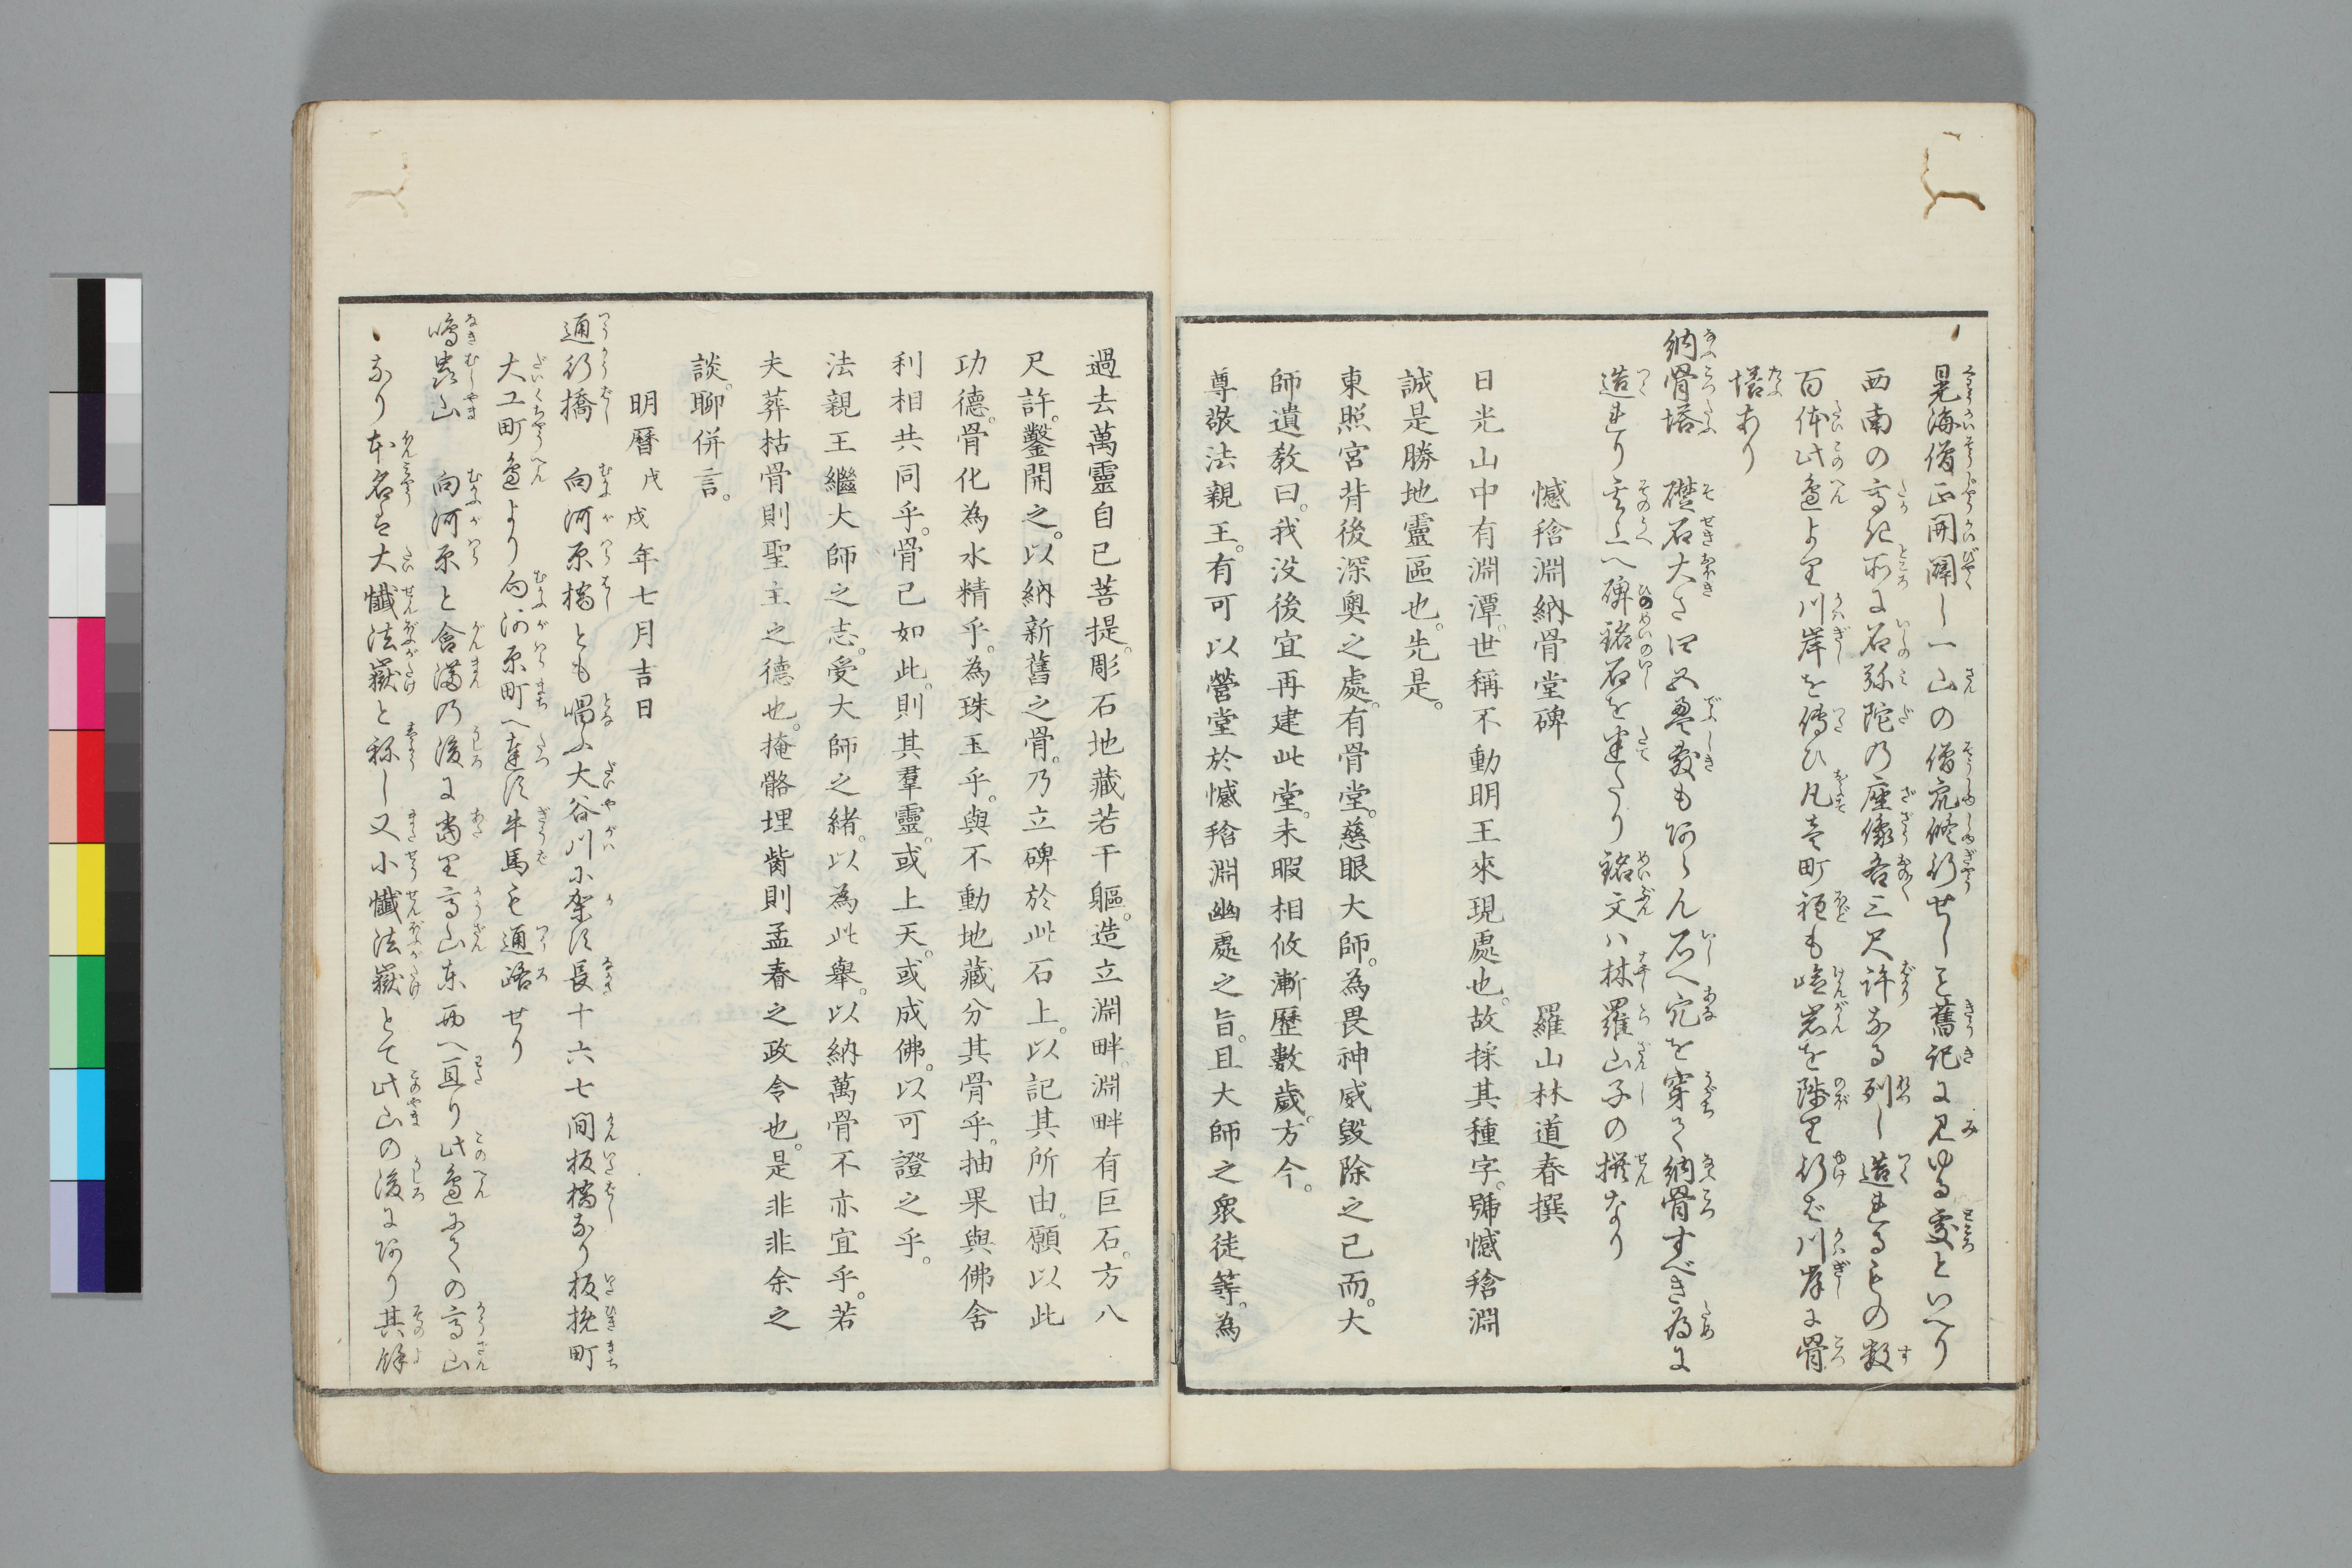 晃海僧正開闢し一山の僧衆修行せしを舊記に見ゆる處といへり
西南の高き所に石弥陀の座像各三尺許なる列し造れるもの数
百体此邉より川岸を傳ひ凡壱町程も嶮岩を陟り行ば川岸に骨
塔あり
納骨塔 礎石大さ四五疊敷もあらん石へ穴を穿て納骨すべき為に
造れり其上へ碑銘石を建たり銘文ハ林羅山子の撰なり
憾𤚥淵納骨堂碑 羅山林道春撰
日光山中有淵潭。世稱不動明王來現處也。故採其種字。號憾𤚥淵
誠是勝地靈區也。先是。
東照宮背後深奥之處。有骨堂。慈眼大師。為畏神威毀除之已而。大
師遺教曰。我没後宜再建此堂。未暇相攸漸歴數歳。方今。
尊敬法親王。有可以營堂於憾𤚥淵幽處之旨。且大師之衆徒等。為
過去萬靈自已菩提。彫石地藏若干軀。造立淵畔。淵畔有巨石。方八
尺許。鑿開之。以納新舊之骨。乃立碑於此石上。以記其所由。願以此
功德。骨化為水精乎。為珠玉乎。與不動地藏分其骨乎。抽果與佛舎
利相共同乎。骨已如此。則其羣靈。或上天。或成佛。以可證之乎。
法親王繼大師之志。受大師之緒。以為此舉。以納萬骨不亦宜乎。若
夫葬枯骨則聖主之德也。掩骼埋胔則孟春之政令也。是非非余之
談。聊併言。
明曆戊戌年七月吉日
通行橋 向河原橋とも唱ふ大谷川に架す長十六七間板橋なり板挽町
大工町邉より向河原町へ達す牛馬も通路せり
鳴蟲山 向河原と含満の後に當り高山東西へ亘り此邉にての高山
なり本名は大懺法嶽と称し又小懺法嶽とて此山の後にあり其餘